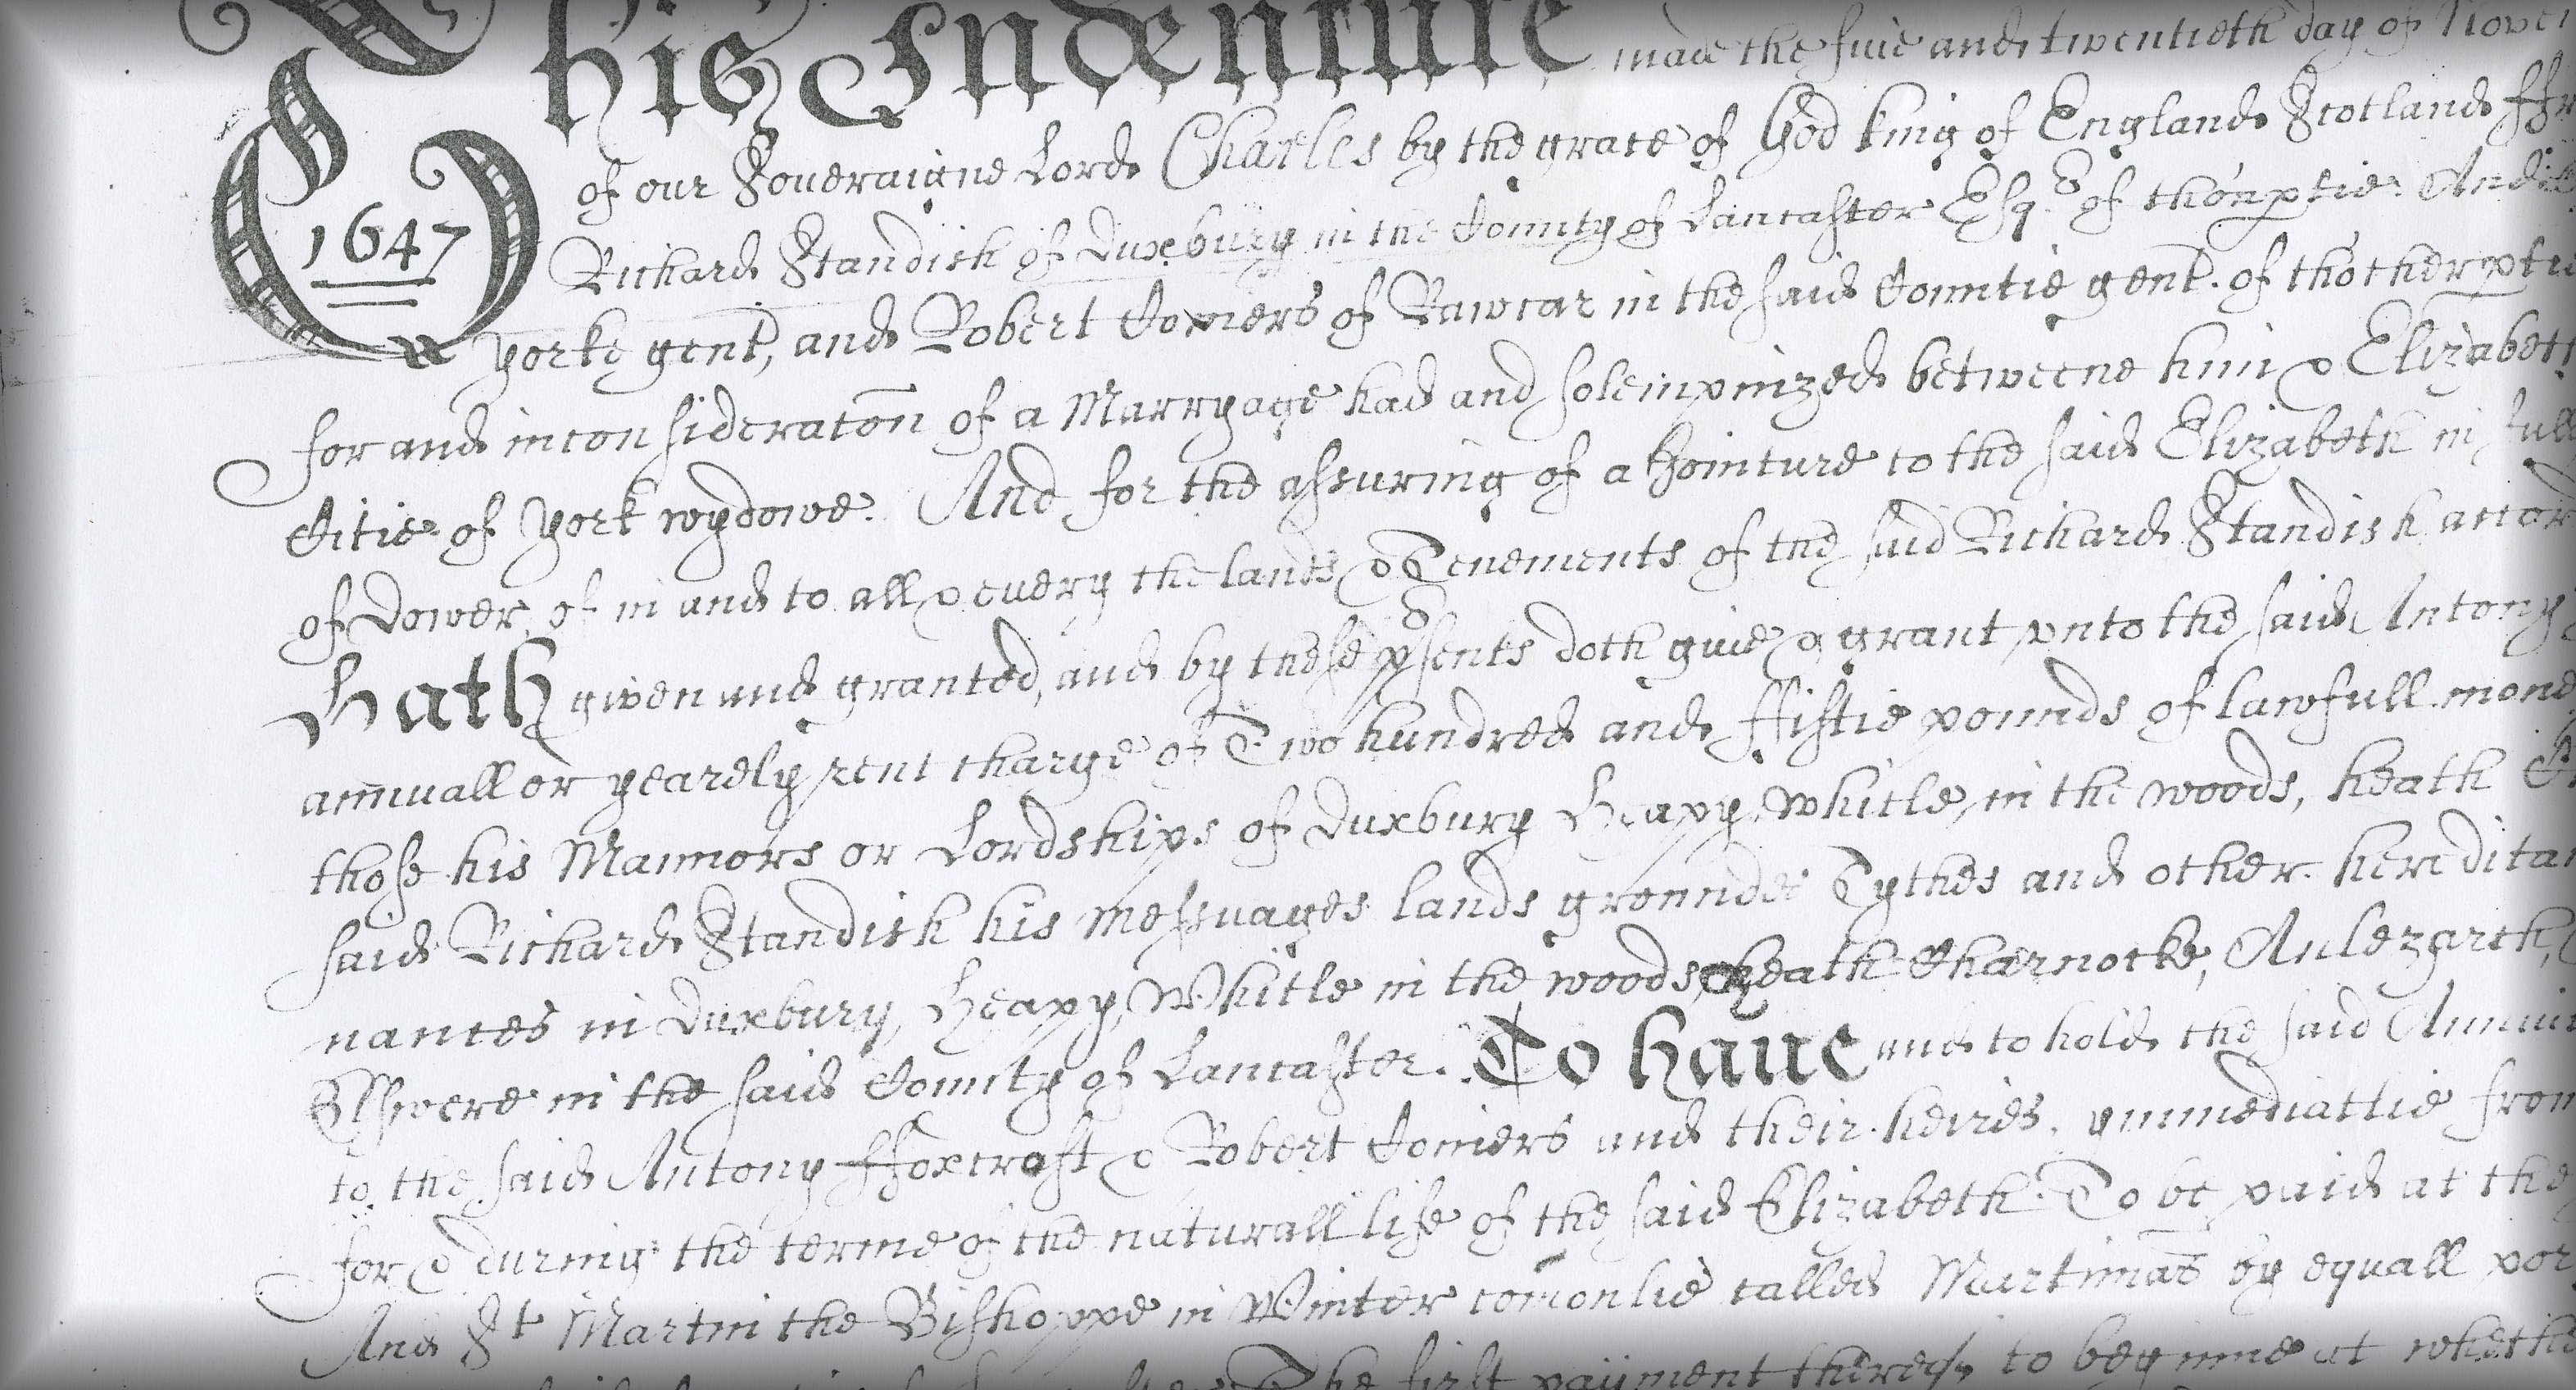 This Indenture made the fiue and twentieth day of Novem
of our Soueraigne Lord Charles by the grace of God king of England Scotland ffr
1647
Richard Standish of Duxbury in the County of Lancaster Esqr of thonptie. And
yorke gent, and Robert Comers of Rawcar in the said Countie gent. of thotherptie
for and in consideraton of a Marryage had and solempnized betweene him & Elizabeth
Citie of york wydowe. And for the assuring of a Joincture to the said Elizabeth in full
of Dower, of in and to all & euery the lands & Tenements of the said Richard Standish accord
Hath given and granted, and by these psents doth giue & grant vnto the said Antony
annuall or yearely rent charge of Two hundred and ffiftie pounds of lawfull mone
those his Mannors or Lordships of Duxbury Heapy, Whitle in the woods, heath
said Richard Standish his messuages lands grounds Tythes and other hereditam
nances in Duxbury, Heapy, Whitle in the woods, heath Charnocke, Anlezargh,
Elswere in the said County of Lancaster. To haue and to hold the said Annui
to the said Antony ffoxcroft & Robert Comers and their heires, ymmediatlie from
for & during the terme of the naturall life of the said Elizabeth. To be paid at the
And St Martin the Bishoppe in Winter comonlie called Martimas by equall por
The first payment thereof to beginne at whethe